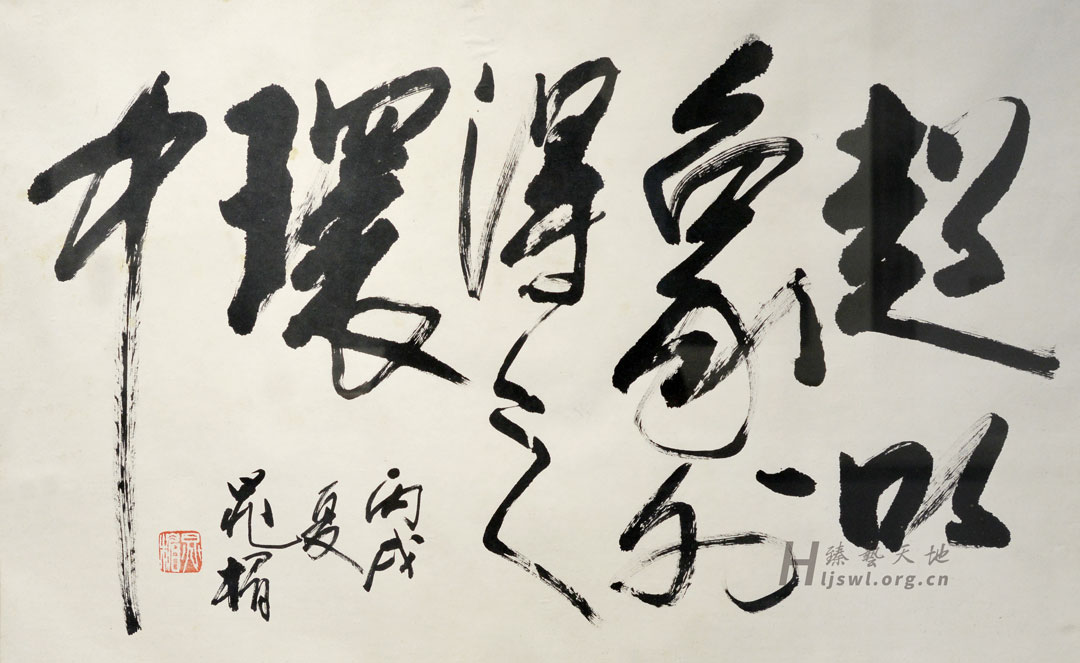 超以
象外
得之
環
中
丙戌
夏
晁楣
晁楣
臻藝天地
Hljswl.org.cn